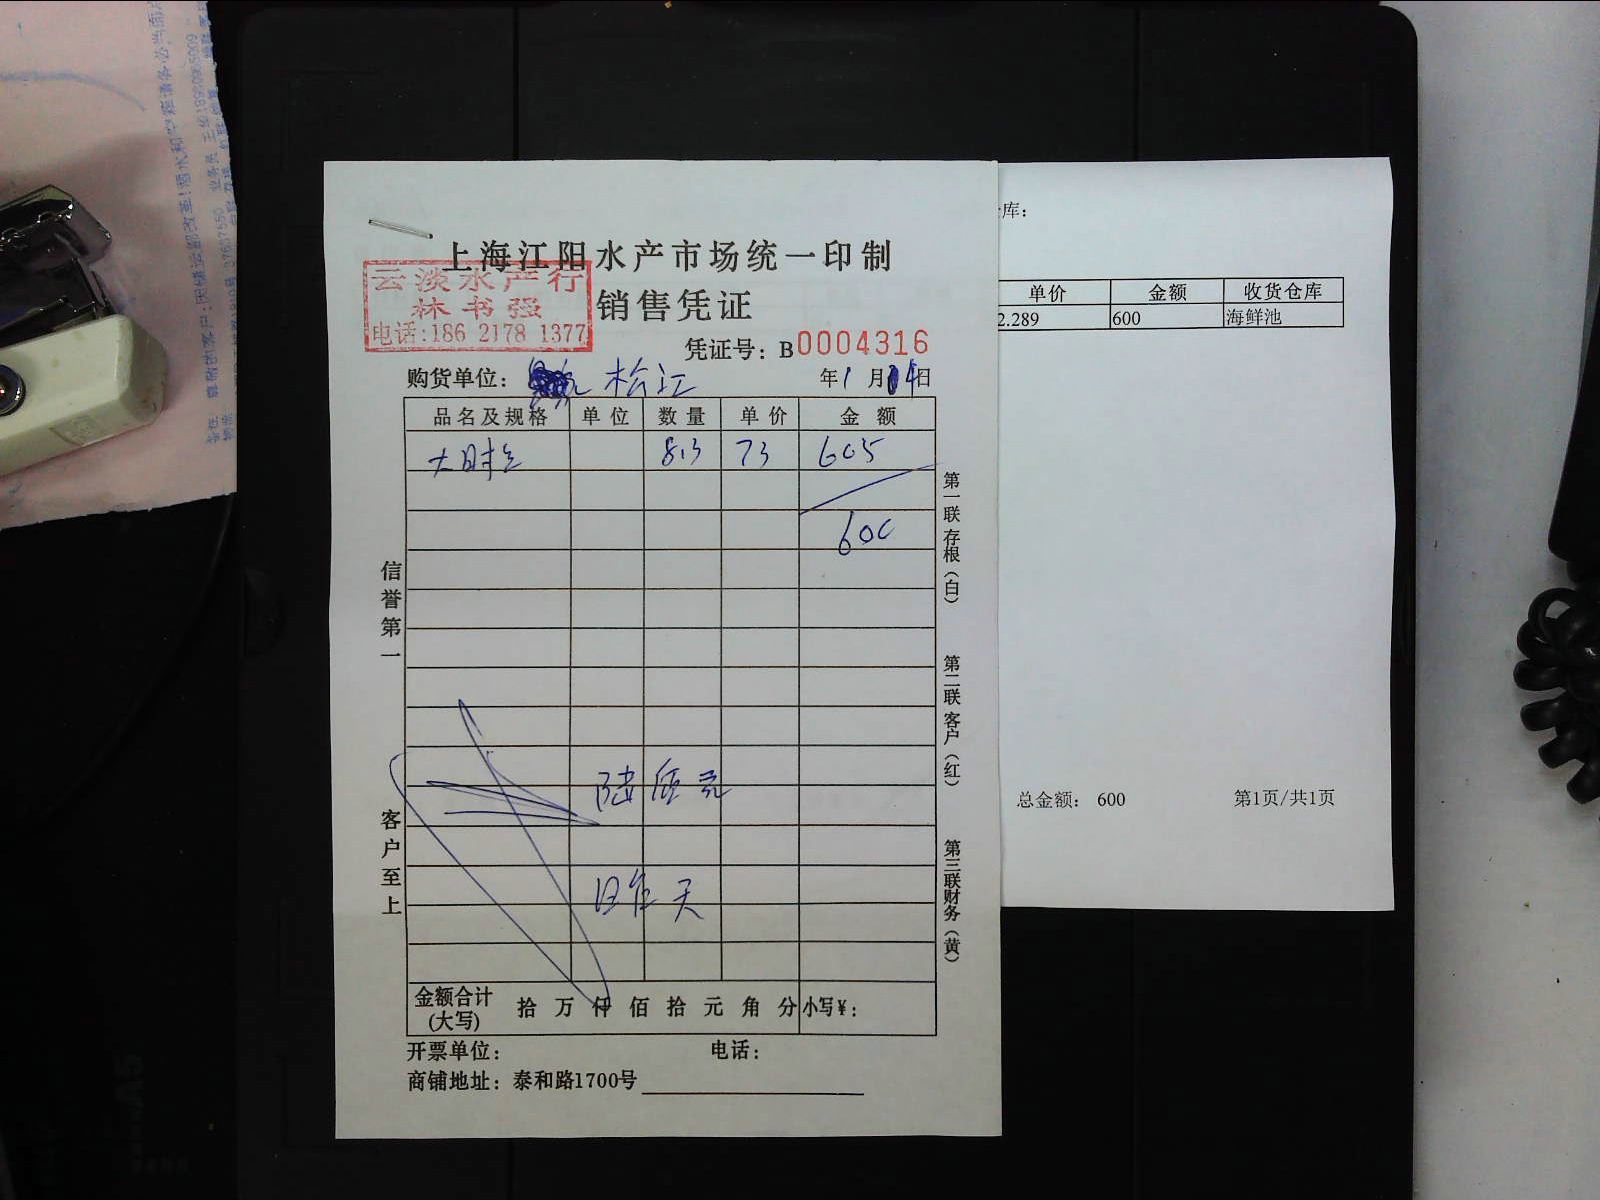 上海江阳水产市场统一印制
云淡水产行
林书强
电话:186 2178 1377
销售凭证
凭证号: B0004316
购货单位: 松江 年1月14日
品名及规格 单位 数量 单价 金额
8.3 73 605
600
陆佰元
昨天
信誉第一
客户至上
第一联存根(白)
第二联客户(红)
第三联财务(黄)
金额合计(大写) 拾 万 仟 佰 拾 元 角 分 小写¥:
开票单位: 电话:
商铺地址: 泰和路1700号
库:
单价 金额 收货仓库
2.289 600 海鲜池
总金额: 600 第1页/共1页